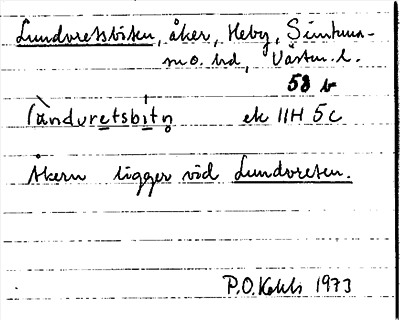 Lundvretsbiten, åker, Heby, Simtuna-
m o. hd, Västm. l.
58 b
làndvretsbı́tņ ek 11H 5c
Åkern ligger vid Lundvreten.
P.O. 1973